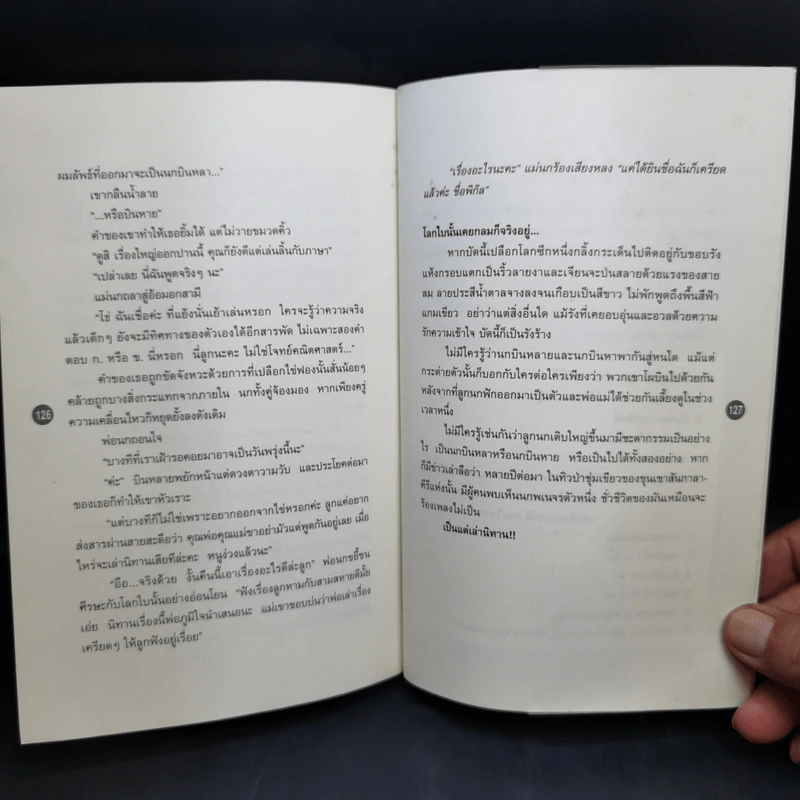 ผมลัพธ์ที่ออกมาจะเป็นนกบินหลา..."
เขากลืนน้ำลาย
"...หรือบินหาย"
คำของเขาทำให้เธอยิ้มได้ แต่ไม่วายขมวดคิ้ว
"ดูสิ เรื่องใหญ่ออกปานนี้ คุณก็ยังดีแต่เล่นลิ้นกับภาษา"
"เปล่าเลย นี่ฉันพูดจริงๆ นะ"
แม่นกถลาสู่อ้อมอกสามี
"โธ่ ฉันเชื่อค่ะ ที่แย้งนั่นเย้าเล่นหรอก ใครจะรู้ว่าความจริง
แล้วเด็กๆ ยังจะมีทิศทางของตัวเองได้อีกสารพัด ไม่เฉพาะสองคำ
ตอบ ก. หรือ ข. นี่หรอก นี่ลูกนะคะ ไม่ใช่โจทย์คณิตศาสตร์..."
คำของเธอถูกขัดจังหวะด้วยการที่เปลือกไข่ฟองนั้นสั่นน้อยๆ
คล้ายถูกบางสิ่งกระแทกจากภายใน นกทั้งคู่จ้องมอง หากเพียงครู่
ความเคลื่อนไหวก็หยุดยั้งลงดังเดิม
พ่อนกถอนใจ
"บางทีที่เราเฝ้ารอคอยมาอาจเป็นวันพรุ่งนี้นะ"
"ค่ะ" บินหลายพยักหน้าแต่ดวงตาวามวับ และประโยคต่อมา
ของเธอก็ทำให้เขาหัวเราะ
"แต่บางทีก็ไม่ใช่เพราะอยากออกจากไข่หรอกค่ะ ลูกแค่อยาก
ส่งสารผ่านสายสะดือว่า คุณพ่อคุณแม่ขาอย่ามัวแต่พูดกันอยู่เลย เมื่อ
ไหร่จะเล่านิทานเสียทีล่ะคะ หนูง่วงแล้วนะ"
"อือ...จริงด้วย งั้นคืนนี้เอาเรื่องอะไรดีล่ะลูก" พ่อนกขยี้ขน
ศีรษะกับโลกใบนั้นอย่างอ่อนโยน "ฟังเรื่องลูกหามกับสามสหายดีมั้ย
เอ่ย นิทานเรื่องนี้พ่อภูมิใจนำเสนอนะ แม่เขาชอบบ่นว่าพ่อเล่าเรื่อง
เครียดๆ ให้ลูกฟังอยู่เรื่อย"
126
"เรื่องอะไรนะคะ" แม่นกร้องเสียงหลง "แค่ได้ยินชื่อฉันก็เครียด
แล้วค่ะ ชื่อพิกีล"
โลกใบนั้นเคยกลมก็จริงอยู่...
หากบัดนี้เปลือกโลกซีกหนึ่งกลิ้งกระเด็นไปติดอยู่กับขอบรัง
แห้งกรอบแตกเป็นริ้วลายงาและเจียนจะป่นสลายด้วยแรงของสาย
ลม ลายประสีน้ำตาลจางลงจนเกือบเป็นสีขาว ไม่พักพูดถึงพื้นสีฟ้า
แกมเขียว อย่าว่าแต่สิ่งอื่นใด แม้รังที่เคยอบอุ่นและอวลด้วยความ
รักความเข้าใจ บัดนี้ก็เป็นรังร้าง
ไม่มีใครรู้ว่านกบินหลายและนกบินหาพากันสู่หนใด แม้แต่
กระต่ายตัวนั้นก็บอกกับใครต่อใครเพียงว่า พวกเขาโผบินไปด้วยกัน
หลังจากที่ลูกนกฟักออกมาเป็นตัวและพ่อแม่ได้ช่วยกันเลี้ยงดูในช่วง
เวลาหนึ่ง
ไม่มีใครรู้เช่นกันว่าลูกนกเติบใหญ่ขึ้นมามีชะตากรรมเป็นอย่าง
ไร เป็นนกบินหลาหรือนกบินหาย หรือเป็นไปได้ทั้งสองอย่าง หาก
ก็มีข่าวเล่าลือว่า หลายปีต่อมา ในทิวป่าชุ่มเขียวของขุนเขาสันกาลา-
คีรีแห่งนั้น มีผู้คนพบเห็นนกพเนจรตัวหนึ่ง ชั่วชีวิตของมันเหมือนจะ
ร้องเพลงไม่เป็น
เป็นแต่เล่านิทาน!!
127